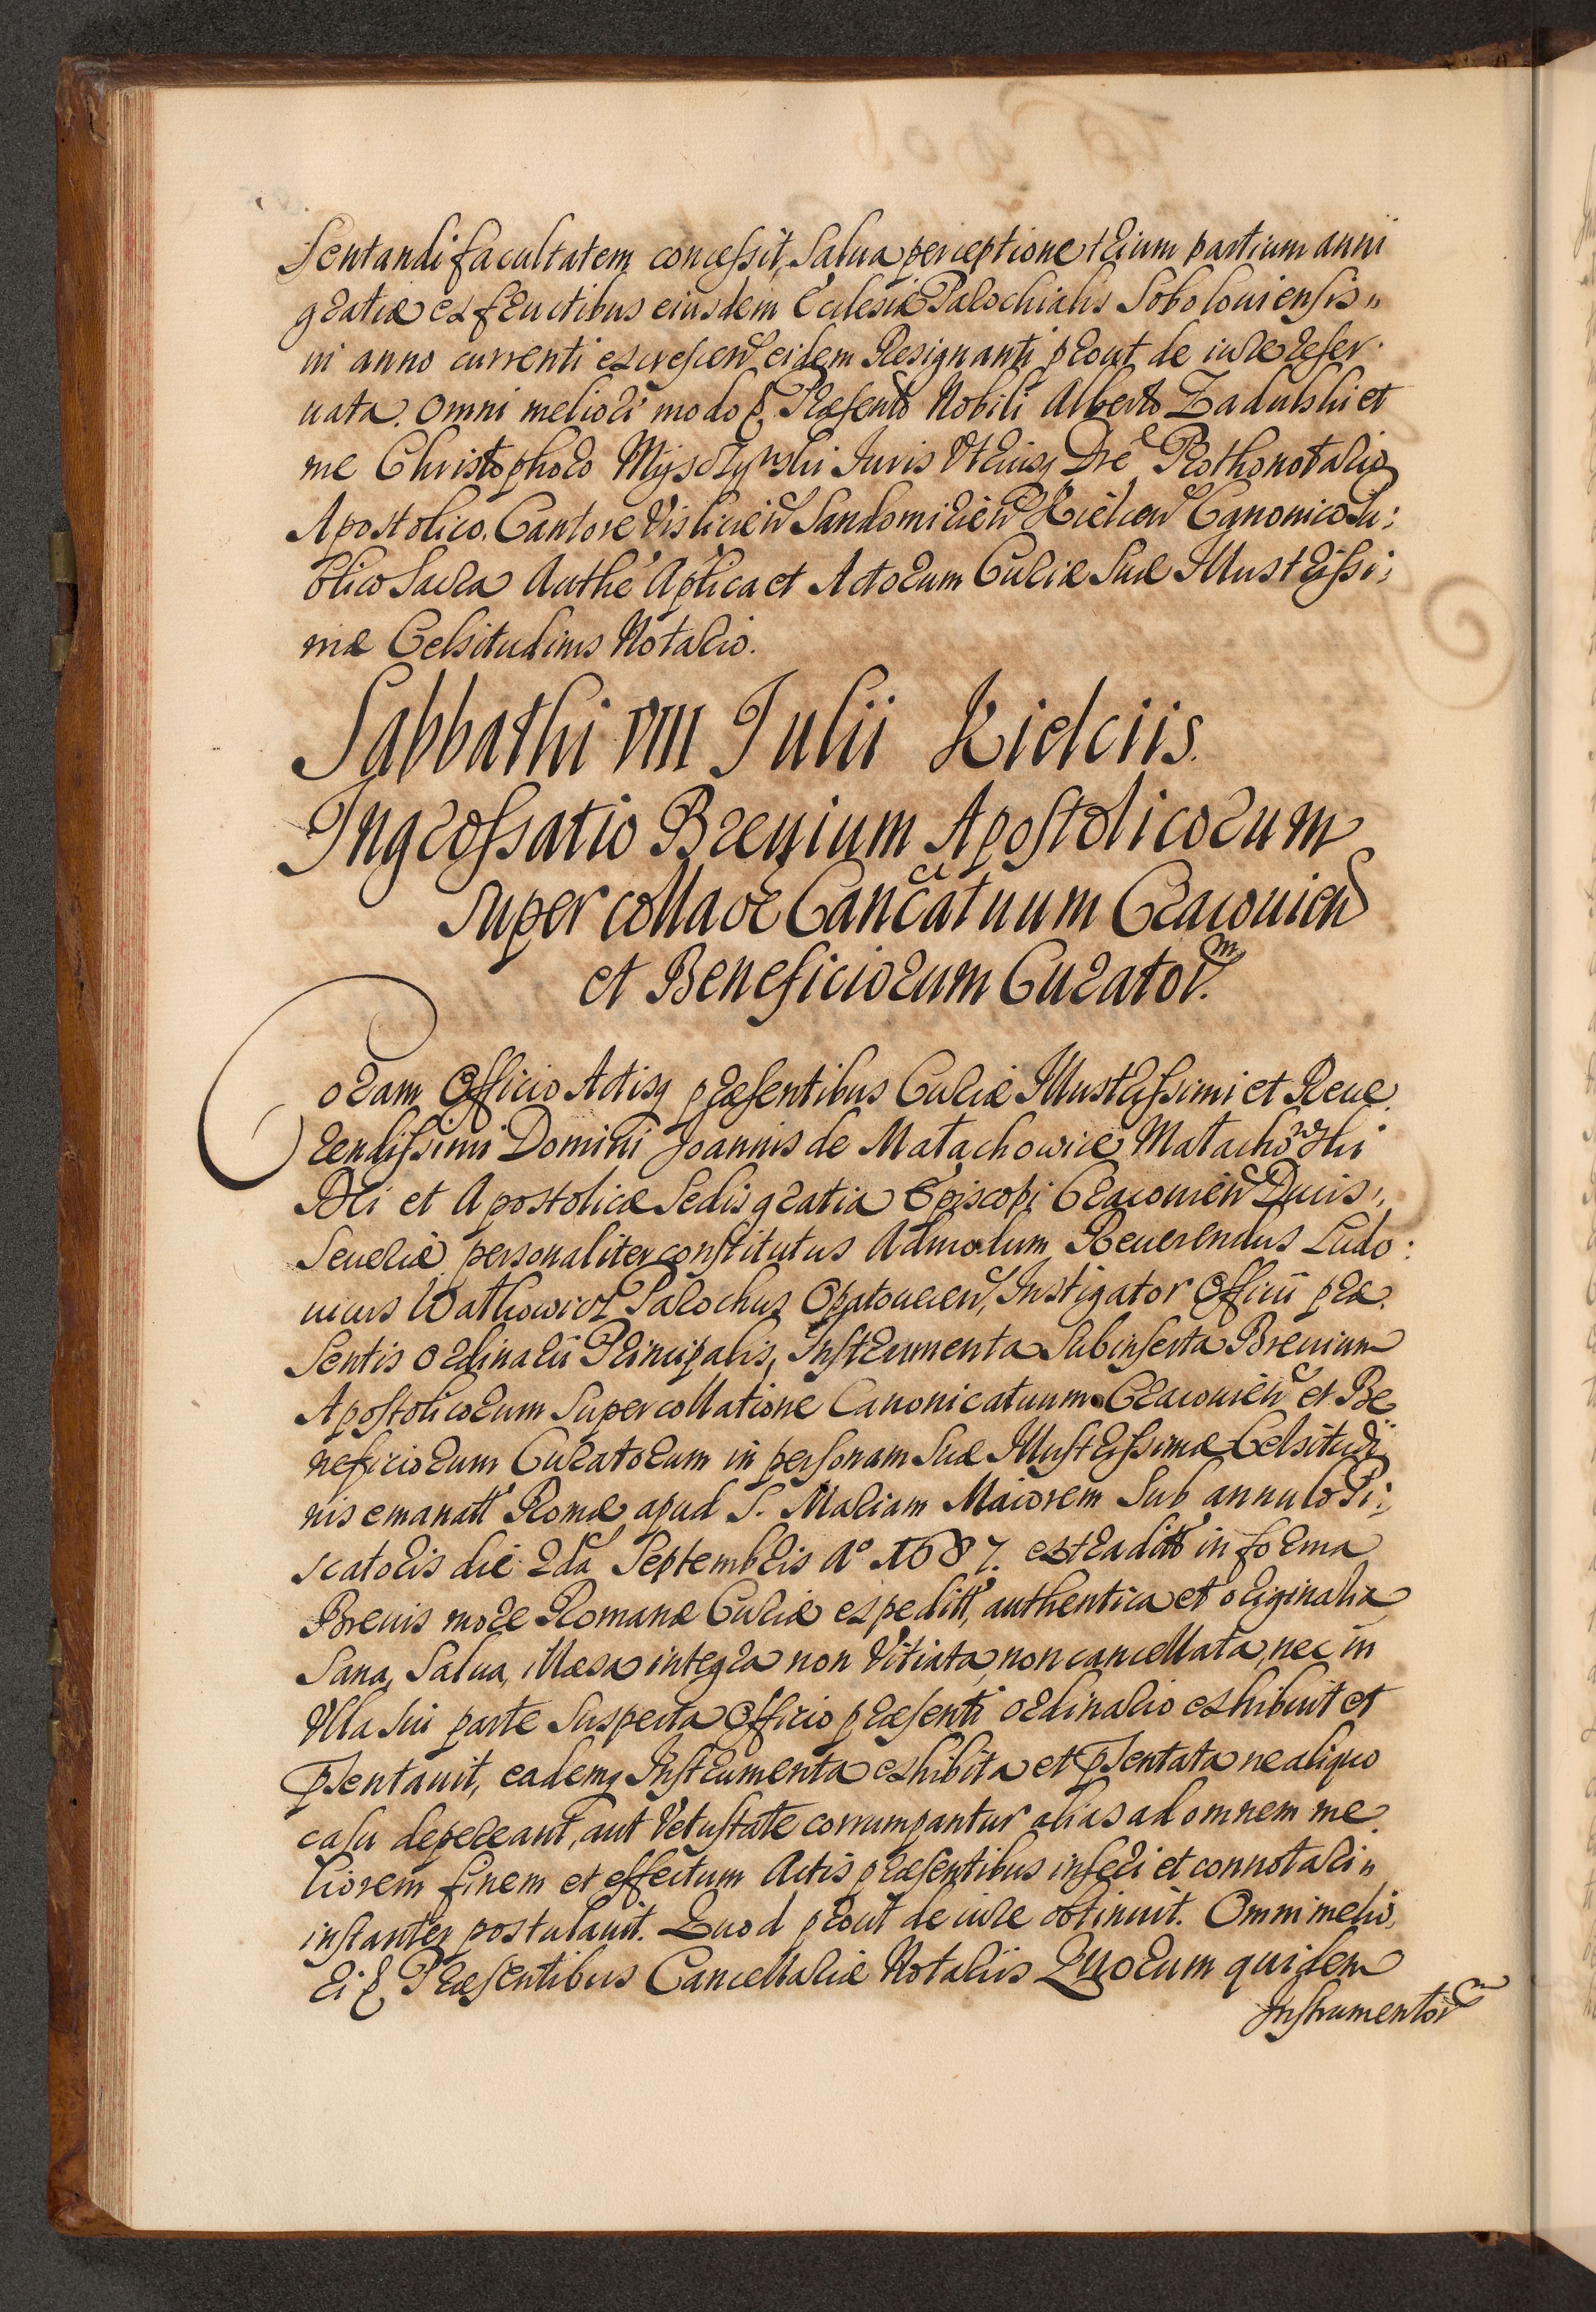 sentandi facultatem concessit, Salua perceptione trium partium anni
gratiæ ex fructibus eiusdem Ecclesiæ Parochialis Sobolouiensis„
in anno currenti excrescen̄ eidem Resignanti prout de iure reser.
uata. omni meliori modo p. Præsentb Nobili Alberto Zadulski et
me Christophoro Mysczynski Iuris Vtriusq Drē Prothonotario
Apostolico. Cantore Visliciēn Sandomiriēn Kielcēn Canonico Pu:
blico Sacra Authē Aplica et Actorum Curiæ Suæ Illustrissi:
mæ Celsitudinis Notario.
Sabbathi VIII Iulii Kielciis.
Ingrossatio Breuium Apostolicorum
super collaōe Cancātuum Cracouien̄
et Beneficiorum Curator.m
Coram Officio Actisq præsentibus Curiæ Illustrissimi et Reue.
rendissimi Domini Joannis de Małachowice Małachowski
Dei et Apostolicæ Sedis gratia Episcopi Cracouiēn Ducis„
Seueriæ personaliter constitutus Admodum Reuerendus Ludo:
uicus Wathowicz Parochus Opatouiecen̄, Instigator Officii præ.
sentis ordinarii Principalis, Instrumenta Subinserta Breuium
Apostolicorum Super collatione Canonicatuum Cracouiēn et Be
neficiorum Curatorum in personam Suæ Illustrissimæ Celsitudi
nis emanatt Romæ apud S. Mariam Maiorem Sub annulo Pi:
scatoris die 2da Septembris A° 1687. extraditt in forma
Breuis more Romanæ Curiæ expeditt, authentica et originalia
Sana, Salua, illæsa integra non Vitiata, non cancellata, nec in
Vlla sui parte Suspecta Officio præsenti ordinario exhibuit et
psentauit, eademq Instrumenta exhibita et psentata ne aliquo
casu depereant, aut Vetustate corrumpantur alias ad omnem me.
liorem finem et effectum Actis præsentibus inseri et connotari„
instanter postulauit. Quod prout de iure obtinuit. Omni melio,
ri p. Præsentibus Cancellariæ Notariis Quorum quidem
Instrumentor.m